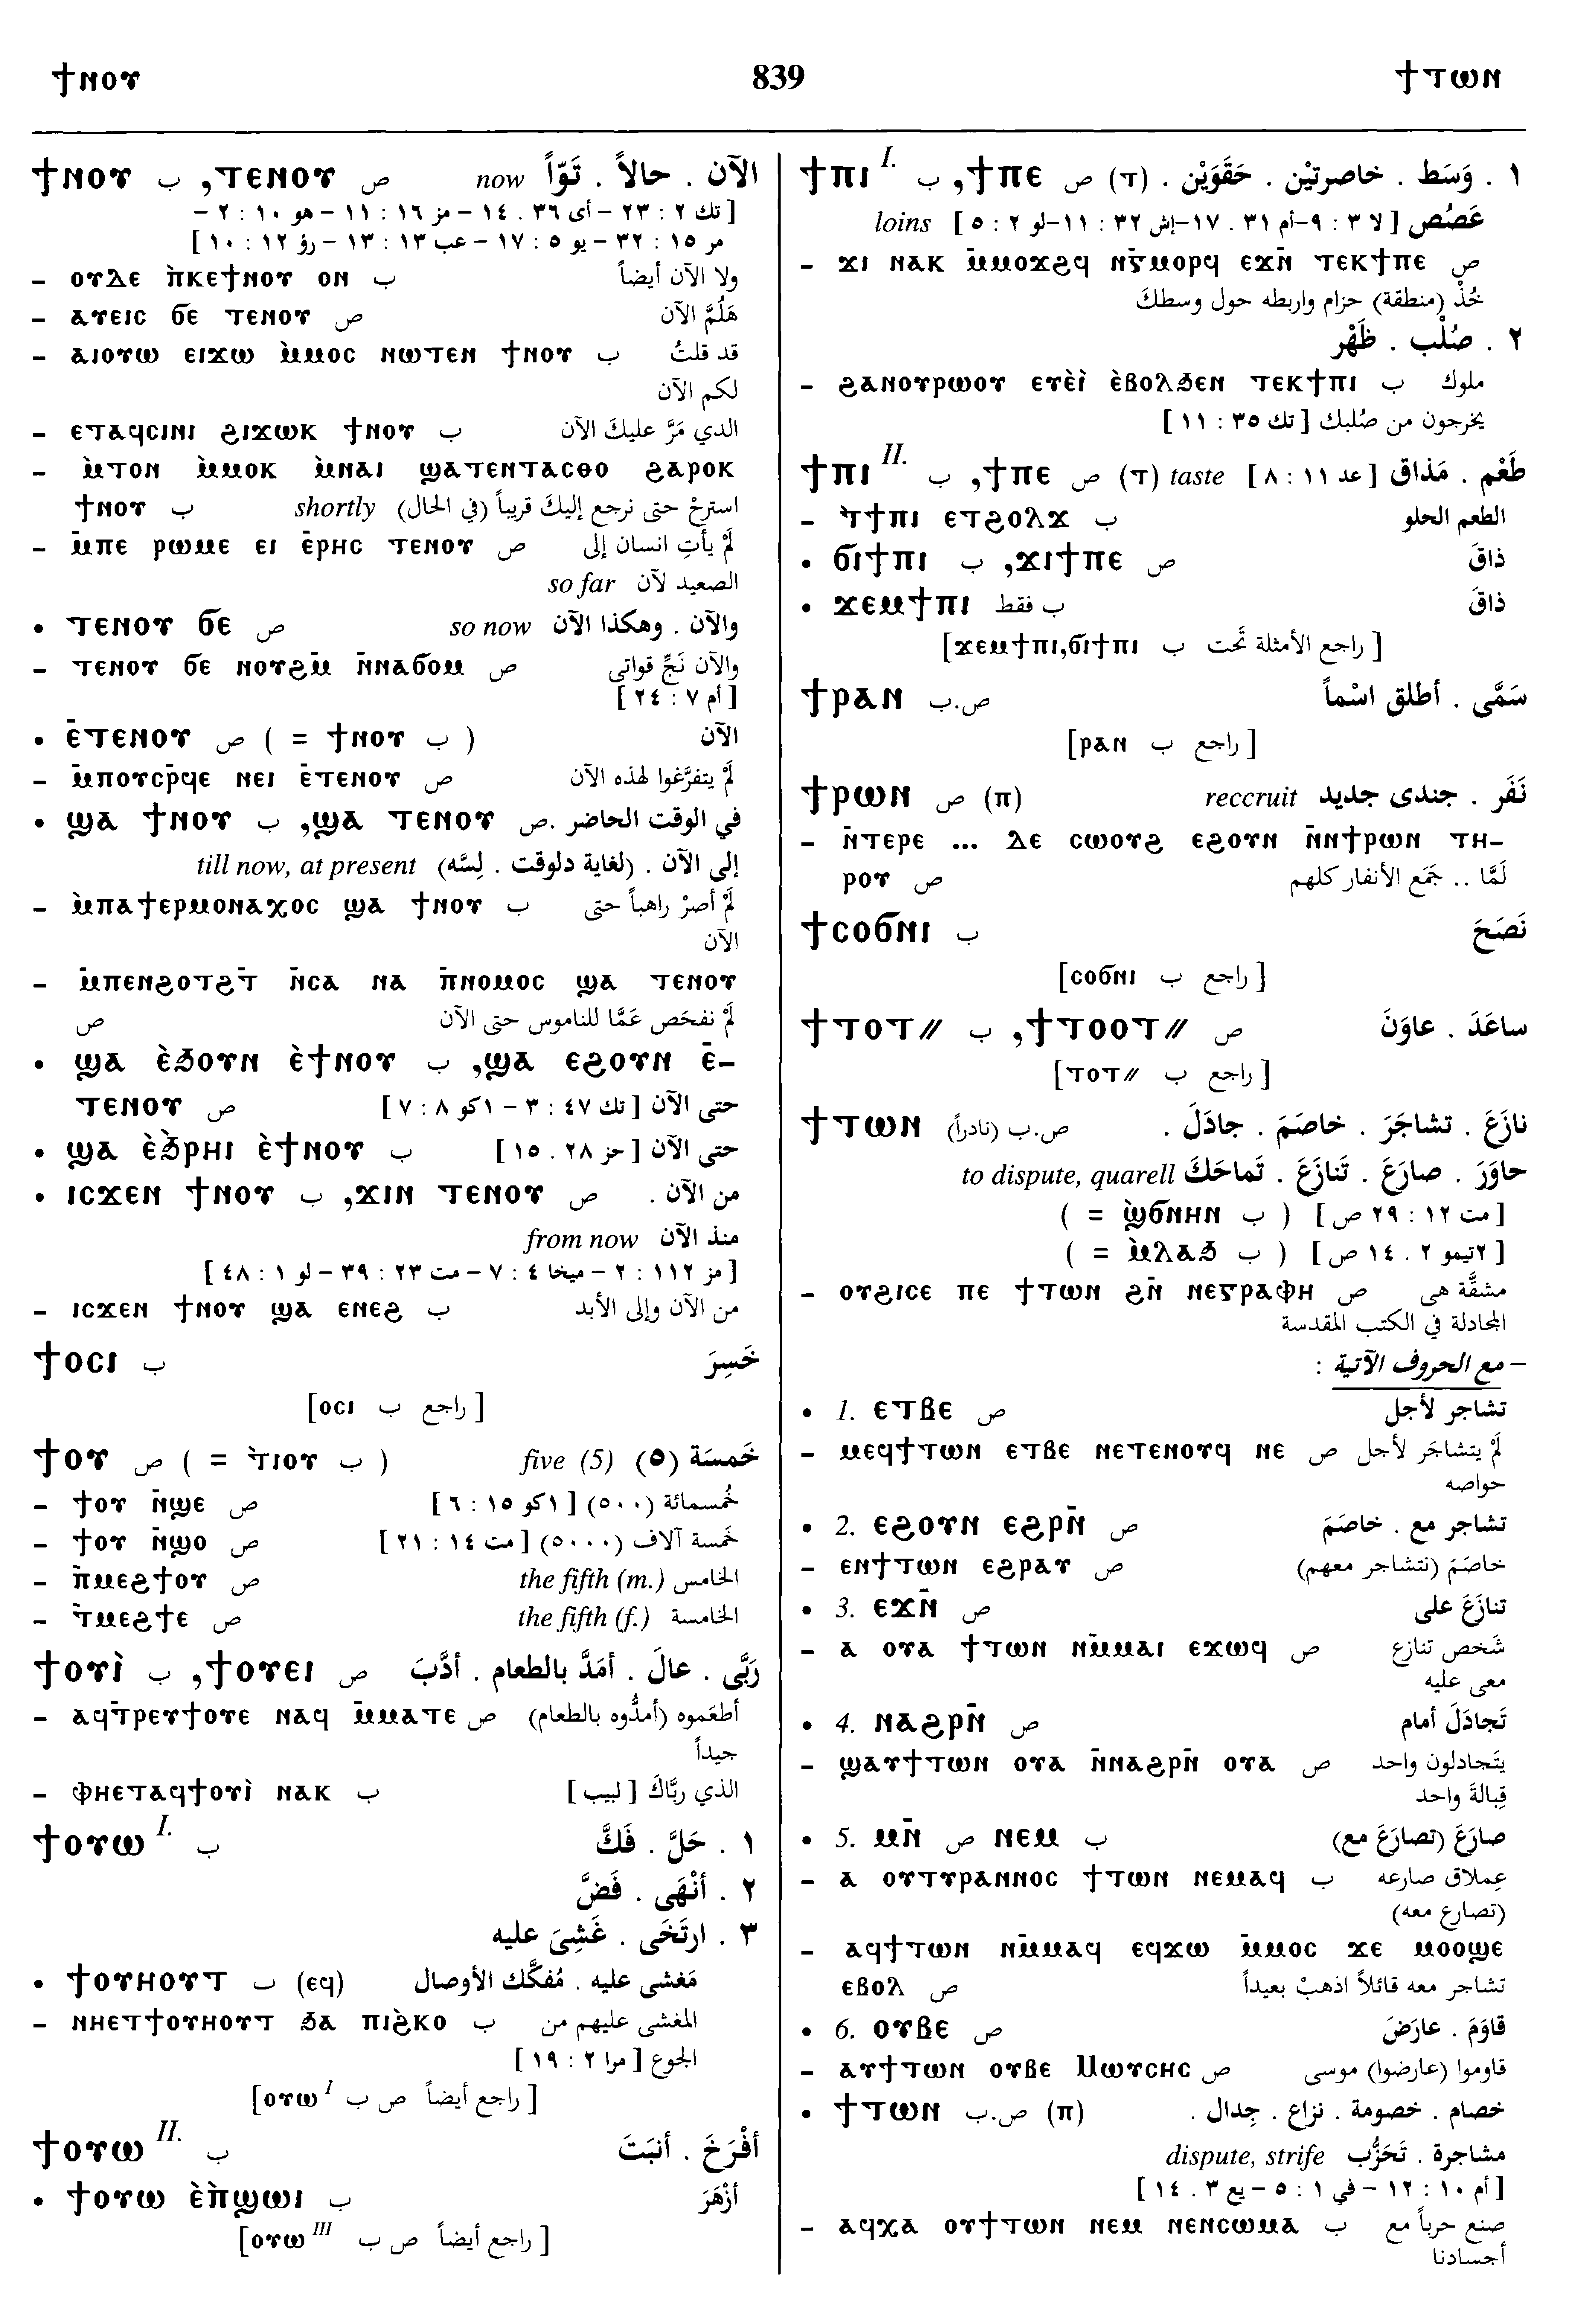 ϯⲛⲟⲩ 839 ϯⲧⲱⲛ
ϯⲛⲟⲩ ب ,ⲧⲉⲛⲟⲩ ص now الآن . حالاً . تَوّاً
[ تك ٢ : ٢٣ – أى ٣٦ . ١٤ – مز ١٦ : ١١ – هو ١٠ : ٢ –
مر ١٥ : ٣٢ – يو ٥ : ١٧ – عب ١٣ : ١٣ – رؤ ١٢ : ١٠ ]
– ⲟⲩⲇⲉ ⲛ̀ⲕⲉϯⲛⲟⲩ ⲟⲛ ب ولا الآن أيضاً
– ⲁⲩⲉⲓⲥ ϭⲉ ⲧⲉⲛⲟⲩ ص هَلُمَّ الآن
– ⲁⲓⲟⲩⲱ ⲉⲓϫⲱ ⲙ̀ⲙⲟⲥ ⲛⲱⲧⲉⲛ ϯⲛⲟⲩ ب قد قلتُ
لكم الآن
– ⲉⲧⲁϥⲥⲓⲛⲓ ϩⲓϫⲱⲕ ϯⲛⲟⲩ ب الدي مَرَّ عليكَ الآن
– ⲙ̀ⲧⲟⲛ ⲙ̀ⲙⲟⲕ ⲙ̀ⲛⲁⲓ ϣⲁⲧⲉⲛⲧⲁⲥⲑⲟ ϩⲁⲣⲟⲕ
ϯⲛⲟⲩ ب shortly استرحْ حتى نرجع إليكَ قريباً (في الحال)
– ⲙ̄ⲡⲉ ⲣⲱⲙⲉ ⲉⲓ ⲉ̄ⲣⲏⲥ ⲧⲉⲛⲟⲩ ص لَمْ يأتِ انسان إلى
so far الصعيد لآن
• ⲧⲉⲛⲟⲩ ϭⲉ ص so now والآن . وهكذا الآن
– ⲧⲉⲛⲟⲩ ϭⲉ ⲛⲟⲩϩⲙ̄ ⲛ̄ⲛⲁϭⲟⲙ ص والآن نَجِّ قواتى
[ أم ٧ : ٢٤ ]
• ⲉ̄ⲧⲉⲛⲟⲩ ص ( = ϯⲛⲟⲩ ب ) الآن
– ⲙ̄ⲡⲟⲩⲥⲣ̄ϥⲉ ⲛⲉⲓ ⲉ̄ⲧⲉⲛⲟⲩ ص لَمْ يتفرَّغوا لهذه الآن
• ϣⲁ ϯⲛⲟⲩ ب ,ϣⲁ ⲧⲉⲛⲟⲩ ص. في الوقت الحاضر
till now, at present إلى الآن . (لغاية دلوقت . لِسَّه)
– ⲙ̀ⲡⲁϯⲉⲣⲙⲟⲛⲁⲭⲟⲥ ϣⲁ ϯⲛⲟⲩ ب لَمْ أصرْ راهباً حتى
الآن
– ⲙ̄ⲡⲉⲛϩⲟⲧϩⲧ̄ ⲛ̄ⲥⲁ ⲛⲁ ⲡ̄ⲛⲟⲙⲟⲥ ϣⲁ ⲧⲉⲛⲟⲩ
ص لَمْ نفحَص عَمَّا للناموس حتى الآن
• ϣⲁ ⲉ̀ϧⲟⲩⲛ ⲉ̀ϯⲛⲟⲩ ب ,ϣⲁ ⲉϩⲟⲩⲛ ⲉ̄–
ⲧⲉⲛⲟⲩ ص حتى الآن [ تك ٤٧ : ٣ – ١كو ٨ : ٧ ]
• ϣⲁ ⲉ̀ϧⲣⲏⲓ ⲉ̀ϯⲛⲟⲩ ب حتى الآن [ حز ٢٨ . ١٥ ]
• ⲓⲥϫⲉⲛ ϯⲛⲟⲩ ب ,ϫⲓⲛ ⲧⲉⲛⲟⲩ ص من الآن .
from now منذ الآن
[ مز ١١٢ : ٢ – ميخا ٤ : ٧ – مت ٢٣ : ٣٩ – لو ١ : ٤٨ ]
– ⲓⲥϫⲉⲛ ϯⲛⲟⲩ ϣⲁ ⲉⲛⲉϩ ب من الآن وإلى الأبد
ϯⲟⲥⲓ ب خَسِرَ
[ راجع ب ⲟⲥⲓ]
ϯⲟⲩ ص ( = ⲧ̀ⲓⲟⲩ ب ) five (5) خَمسَة (٥)
– ϯⲟⲩ ⲛ̄ϣⲉ ص خُمسمائة (٥٠٠) [ ١كو ١٥ : ٦ ]
– ϯⲟⲩ ⲛ̄ϣⲟ ص خَمسة آلاف (٥٠٠٠) [ مت ١٤ : ٢١ ]
– ⲡ̄ⲙⲉϩϯⲟⲩ ص the fifth (m.) الخامس
– ⲧ̄ⲙⲉϩϯⲉ ص the fifth (f.) الخامسة
ϯⲟⲩⲓ̀ ب ,ϯⲟⲩⲉⲓ ص رَبَّى . عالَ . أمَدَّ بالطعام . أدَّبَ
– ⲁϥⲧ̄ⲣⲉⲩϯⲟⲩⲉ ⲛⲁϥ ⲙ̄ⲙⲁⲧⲉ ص أطعَموه (أمدُّوه بالطعام)
جيداً
– ⲫⲏⲉⲧⲁϥϯⲟⲩⲓ̀ ⲛⲁⲕ ب الذي ربَّاكَ [ لبيب ]
ϯⲟⲩⲱ I. ب ١ . حَلَّ . فَكَّ
٢ . أنْهَى . فَضَّ
٣ . ارتَخَى . غَشِىَ عليه
• ϯⲟⲩⲏⲟⲩⲧ ب (ⲉϥ) مَغشى عليه . مُفكَّك الأوصال
– ⲛⲏⲉⲧϯⲟⲩⲏⲟⲩⲧ ϧⲁ ⲡⲓϩ̀ⲕⲟ ب المغشى عليهم من
الجوع [ مرا ٢ : ١٩ ]
[ راجع أيضاً ص ب ⲟⲩⲱ I]
ϯⲟⲩⲱ II. ب أفْرَخَ . أنبَتَ
• ϯⲟⲩⲱ ⲉ̀ⲡ̀ϣⲱⲓ ب أزْهَرَ
[ راجع أيضاً ص ب ⲟⲩⲱ III]
ϯⲡⲓ I. ب ,ϯⲡⲉ ص (ⲧ) ١ . وَسَط . خاصرتيْن . حَقَوَيْن .
loins عَصُص [ لا ٣ : ٩–أم ٣١ . ١٧–إش ٣٢ : ١١–لو ٢ : ٥ ]
– ϫⲓ ⲛⲁⲕ ⲙ̄ⲙⲟϫϩϥ ⲛⲅ̄ⲙⲟⲣϥ ⲉϫⲛ̄ ⲧⲉⲕϯⲡⲉ ص
خُذْ (منطقة) حزام واربطه حول وسطكَ
٢ . صُلْب . ظَهْر
– ϩⲁⲛⲟⲩⲣⲱⲟⲩ ⲉⲩⲉ̀ⲓ̀ ⲉ̀ⲃⲟⲗϧⲉⲛ ⲧⲉⲕϯⲡⲓ ب ملوك
يخرجون من صُلبك [ تك ٣٥ : ١١ ]
ϯⲡⲓ II. ب ,ϯⲡⲉ ص (ⲧ) taste طَعْم . مَذاق [ عد ١١ : ٨ ]
– ⲧ̀ϯⲡⲓ ⲉⲧϩⲟⲗϫ ب الطعم الحلو
• ϭⲓϯⲡⲓ ب ,ϫⲓϯⲡⲉ ص ذاقَ
• ϫⲉⲙϯⲡⲓ ب فقط ذاقَ
[ راجع الأمثلة تَحت ب ϫⲉⲙϯⲡⲓ,ϭⲓϯⲡⲓ]
ϯⲣⲁⲛ ص.ب سَمَّى . أطلق اسْماً
[ راجع ب ⲣⲁⲛ]
ϯⲣⲱⲛ ص (ⲡ) reccruit نَفَر . جندى جديد
– ⲛ̄ⲧⲉⲣⲉ ... ⲇⲉ ⲥⲱⲟⲩϩ ⲉϩⲟⲩⲛ ⲛ̄ⲛϯⲣⲱⲛ ⲧⲏ–
ⲣⲟⲩ ص لَمَّا .. جَمَع الأنفار كلهم
ϯⲥⲟϭⲛⲓ ب نَصَحَ
[ راجع ب ⲥⲟϭⲛⲓ]
ϯⲧⲟⲧ⸗ ب ,ϯⲧⲟⲟⲧ⸗ ص ساعَدَ . عاوَنَ
[ راجع ب ⲧⲟⲧ⸗]
ϯⲧⲱⲛ ص.ب (نادراً) نازَعَ . تشاجَرَ . خاصَمَ . جادَلَ .
to dispute, quarell حاوَرَ . صارَعَ . تَنازَعَ . تَماحَكَ
[ مت ١٢ : ٢٩ ص ] ( = ϣ̀ϭⲛⲏⲛ ب )
[ ٢تيمو ٢ . ١٤ ص ] ( = ⲙ̀ⲗⲁϧ ب )
– ⲟⲩϩⲓⲥⲉ ⲡⲉ ϯⲧⲱⲛ ϩⲛ̄ ⲛⲉⲅⲣⲁⲫⲏ ص مشقَّة هى
المجادلة في الكتب المقدسة
– مع الحروف الآتية :
• 1. ⲉⲧⲃⲉ ص تشاجر لأجل
– ⲙⲉϥϯⲧⲱⲛ ⲉⲧⲃⲉ ⲛⲉⲧⲉⲛⲟⲩϥ ⲛⲉ ص لَمْ يتشاجَر لأجل
حواصه
• 2. ⲉϩⲟⲩⲛ ⲉϩⲣⲛ̄ ص تشاجر مع . خاصَمَ
– ⲉⲛϯⲧⲱⲛ ⲉϩⲣⲁⲩ ص خاصَمَ (نتشاجر معهم)
• 3. ⲉϫⲛ̄ ص تنازَعَ على
– ⲁ ⲟⲩⲁ ϯⲧⲱⲛ ⲛⲙ̄ⲙⲁⲓ ⲉϫⲱϥ ص شَخص تنازع
معى عليه
• 4. ⲛⲁϩⲣⲛ̄ ص تَجادَلَ أمام
– ϣⲁⲩϯⲧⲱⲛ ⲟⲩⲁ ⲛ̄ⲛⲁϩⲣⲛ̄ ⲟⲩⲁ ص يتَجادلون واحد
قِبالةَ واحد
• 5. ⲙⲛ̄ ص ⲛⲉⲙ ب صارَعَ (تصارَعَ مع)
– ⲁ ⲟⲩⲧⲩⲣⲁⲛⲛⲟⲥ ϯⲧⲱⲛ ⲛⲉⲙⲁϥ ب عِملاق صارعه
(تصارع معه)
– ⲁϥϯⲧⲱⲛ ⲛⲙ̄ⲙⲁϥ ⲉϥϫⲱ ⲙ̄ⲙⲟⲥ ϫⲉ ⲙⲟⲟϣⲉ
ⲉⲃⲟⲗ ص تشاجر معه قائلاً اذهبْ بعيداً
• 6. ⲟⲩⲃⲉ ص قاوَمَ . عارَضَ
– ⲁⲩϯⲧⲱⲛ ⲟⲩⲃⲉ Ⲙⲱⲩⲥⲏⲥ ص قاوموا (عارضوا) موسى
• ϯⲧⲱⲛ ص.ب (ⲡ) خصام . خصومة . نزاع . جِدال .
dispute, strife مشاجرة . تَحَزُّب
[ أم ١٠ : ١٢ – في ١ : ٥ – يع ٣ . ١٤ ]
– ⲁϥⲭⲁ ⲟⲩϯⲧⲱⲛ ⲛⲉⲙ ⲛⲉⲛⲥⲱⲙⲁ ب صنع حرباً مع
أجسادنا